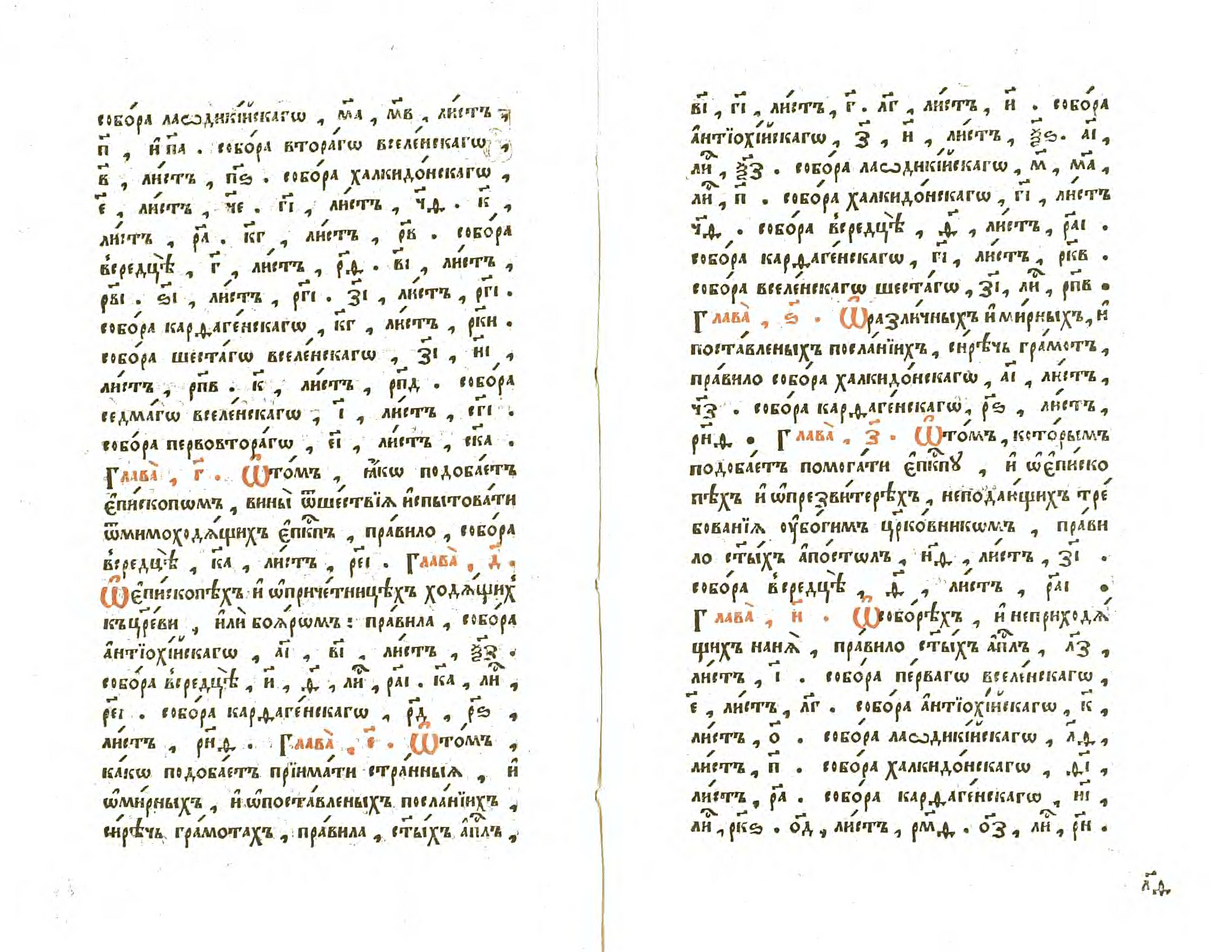 собо́ра лаѡдикі́йскагѡ , м҃а , м҃в , ли́стъ ,
п҃ , и҆ п҃а . собо́ра втора́гѡ вселе́нскагѡ ,
в҃ , ли́стъ , п҃ѕ . собо́ра халкидо́нскагѡ ,
є҃ , ли́стъ , ч҃е . г҃і , ли́стъ , ч҃ѳ . к҃ ,
ли́стъ , р҃а . к҃г , ли́стъ , р҃в . собо́ра
в̾середцѣ̀ , г҃ , ли́стъ , р҃ѳ . в҃і , ли́стъ ,
р҃ві . ѕ҃і , ли́стъ , р҃гі . з҃і , ли́стъ , р҃гі .
собо́ра карѳаге́нскагѡ , к҃г , ли́стъ , р҃ки .
собо́ра шеста́гѡ вселе́нскагѡ , з҃і , и҃і ,
ли́стъ , р҃пв . к҃ , ли́стъ , р҃пд . собо́ра
седма́гѡ вселе́нскагѡ , і҃ , ли́стъ , с҃гі .
собо́ра первовтора́гѡ , є҃і , ли́стъ , с҃ка .
Глава̀ , г҃ . Ѡ҆то́мъ , ꙗ҆́кѡ подоба́етъ
є҆пи́скопѡмъ , вины̀ ѿше́ствїѧ и҆спытова́ти
ѿмимоходѧ́щихъ є҆п҃кпъ , пра́вило , собо́ра
в̾середцѣ̀ , к҃а , ли́стъ , р҃еі . Глава̀ , д҃ .
Ѡ҆є҆пи́скопѣхъ и҆ ѡ҆приче́тницѣхъ ходѧ́щихъ
къцр҃е́ви , и҆лѝ боѧ́рѡмъ : пра́вила , собо́ра
а҆нтїохі́йскагѡ , а҃і , в҃і , ли́стъ , ѯ҃з .
собо́ра в̾середцѣ̀ , и҃ , ѳ҃ , ли́ , р҃аі . к҃а , ли́ ,
р҃еі . собо́ра карѳаге́нскагѡ , р҃д , р҃ѕ ,
ли́стъ , р҃нѳ . Глава̀ , є҃ . Ѡ҆то́мъ ,
ка́кѡ подоба́етъ прїима́ти стра́нныѧ , и҆
ѡ҆ми́рныхъ , и҆ ѡ҆поста́вленыхъ посла́нїихъ ,
си́рѣчь гра́мотахъ , пра́вила , ст҃ы́хъ а҆п҃лъ ,
в҃і , г҃і , ли́стъ , г҃ . л҃г , ли́стъ , и҃ . собо́ра
а҆нтїохі́йскагѡ , з҃ , и҃ , ли́стъ , ѯ҃ѕ . а҃і ,
ли́ , ѯ҃з . собо́ра лаѡдикі́йскагѡ , м҃ , м҃а ,
ли́ , п҃ . собо́ра халкидо́нскагѡ , г҃і , ли́стъ
ч҃ѳ . собо́ра в̾середцѣ̀ , ѳ҃ , ли́стъ , р҃аі .
собо́ра карѳаге́нскагѡ , г҃і , ли́стъ , р҃кв .
собо́ра вселе́нскагѡ шеста́гѡ , з҃і , ли́ , р҃пв .
Глава̀ , ѕ҃ . Ѡ҆разли́чныхъ и҆ми́рныхъ , и҆
поста́вленыхъ посла́нїихъ , си́рѣчь гра́мотъ ,
пра́вило собо́ра халкидо́нскагѡ , а҃і , ли́стъ ,
ч҃з . собо́ра карѳаге́нскагѡ , р҃ѕ , ли́стъ ,
р҃нѳ . Глава̀ , з҃ . Ѡ҆то́мъ , кото́рымъ
подоба́етъ помога́ти є҆п҃кпꙋ , и҆ ѡ҆є҆пи́ско
пѣхъ и҆ ѡ҆презви́терѣхъ , неподаю́щихъ тре́
бованїѧ ᲂу҆бо́гимъ цр҃ко́вникѡмъ , пра́ви
ло ст҃ы́хъ а҆по́столъ , н҃ѳ , ли́стъ , з҃і .
собо́ра в̾середцѣ̀ , ѳ҃ , ли́стъ , р҃аі .
Глава̀ , и҃ . Ѡ҆собо́рѣхъ , и҆ неприходѧ́
щихъ на нѧ̀ , пра́вило ст҃ы́хъ а҆п҃лъ , л҃з
ли́стъ , і҃ . собо́ра пе́рвагѡ вселе́нскагѡ ,
є҃ , ли́стъ , л҃г . собо́ра а҆нтїохі́йскагѡ , к҃ ,
ли́стъ , о҃ . собо́ра лаѡдикі́йскагѡ , л҃ѳ ,
ли́стъ , п҃ . собо́ра халкидо́нскагѡ , ѳ҃і ,
ли́стъ , р҃а . собо́ра карѳаге́нскагѡ , и҃і ,
ли́ , р҃кѕ . о҃д , ли́стъ , р҃мѳ . о҃з , ли́ , р҃н .
л҃ѳ